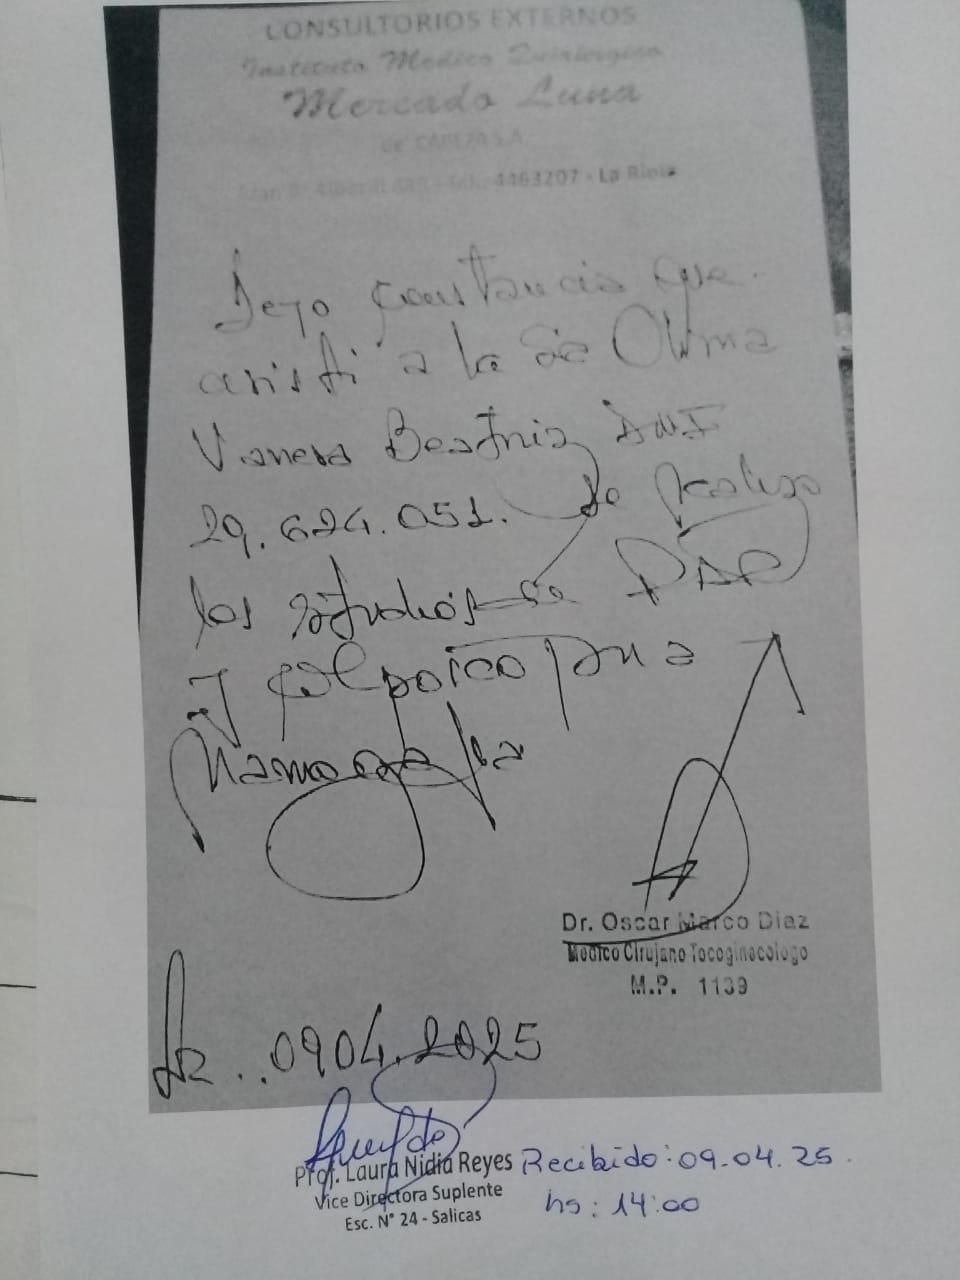 CONSULTORIOS EXTERNOS
Instituto Medico Quirurgico
Mercado Luna
de CAMEZA S.A.
4463207 - La Rioja
Dejo constancia que
asisti a la Sra Olima
Vanesa Beatriz DNI
29.624.051. Se realizo
los estudios de PAP
y colposco
Mamografia
LR..0904.2025
Dr. Oscar Marco Diaz
Medico Cirujano Tocoginecologo
M.P. 1139
Prof. Laura Nidia Reyes
Vice Directora Suplente
Esc. N° 24 - Salicas
Recibido: 09.04.25.
hs: 14:00